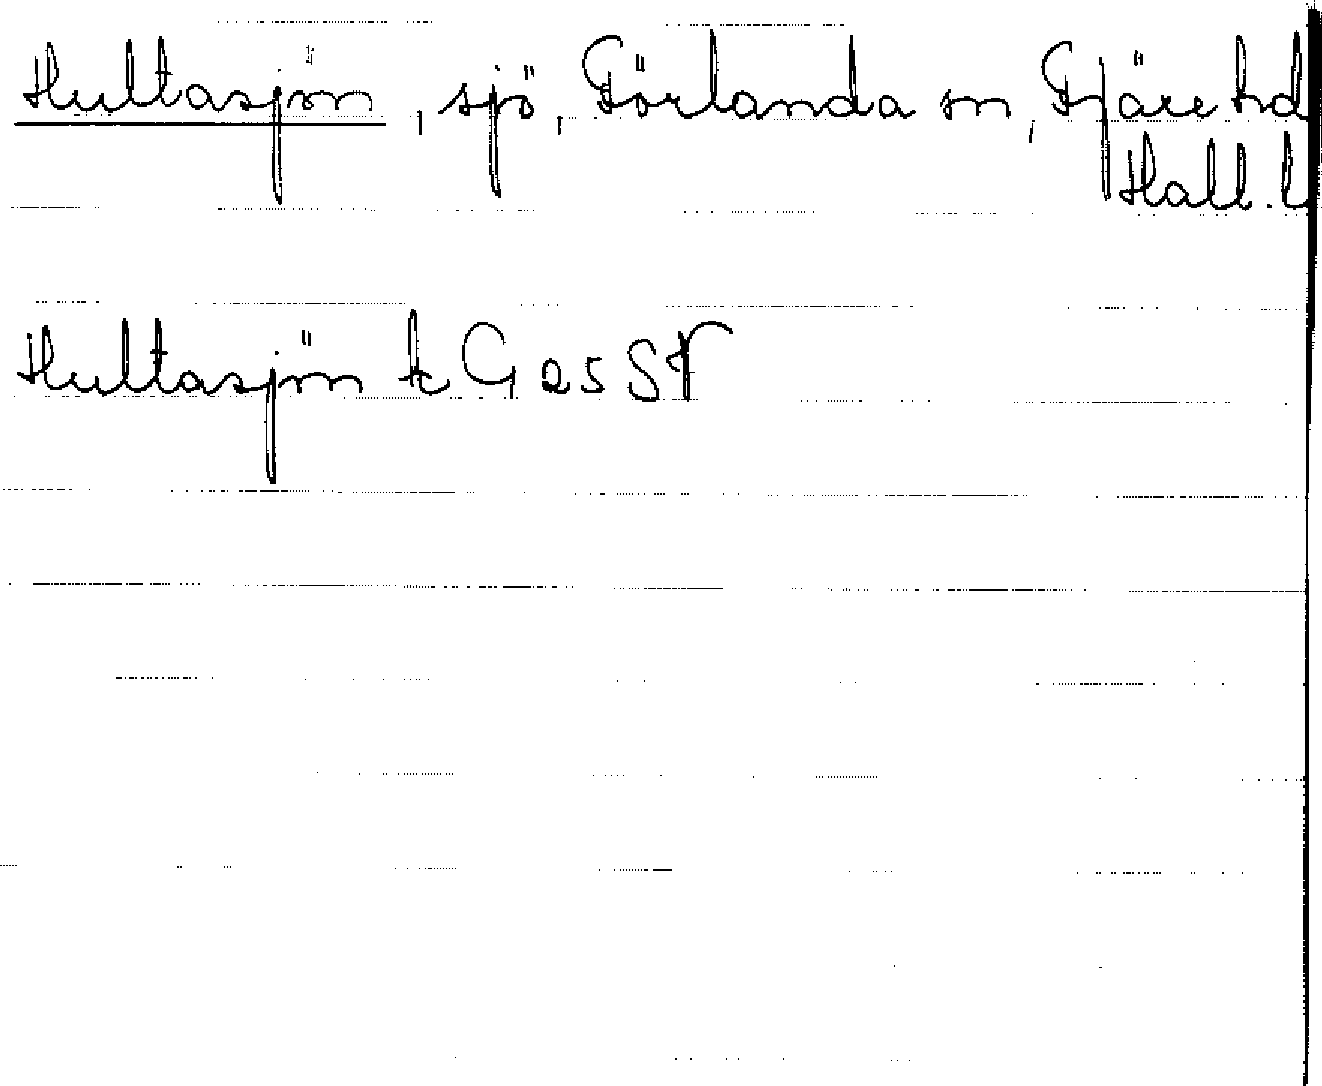 Hultasjön, sjö, Förlanda sn, Fjäre hd
Hall. l
Hultasjön k G 25 SV